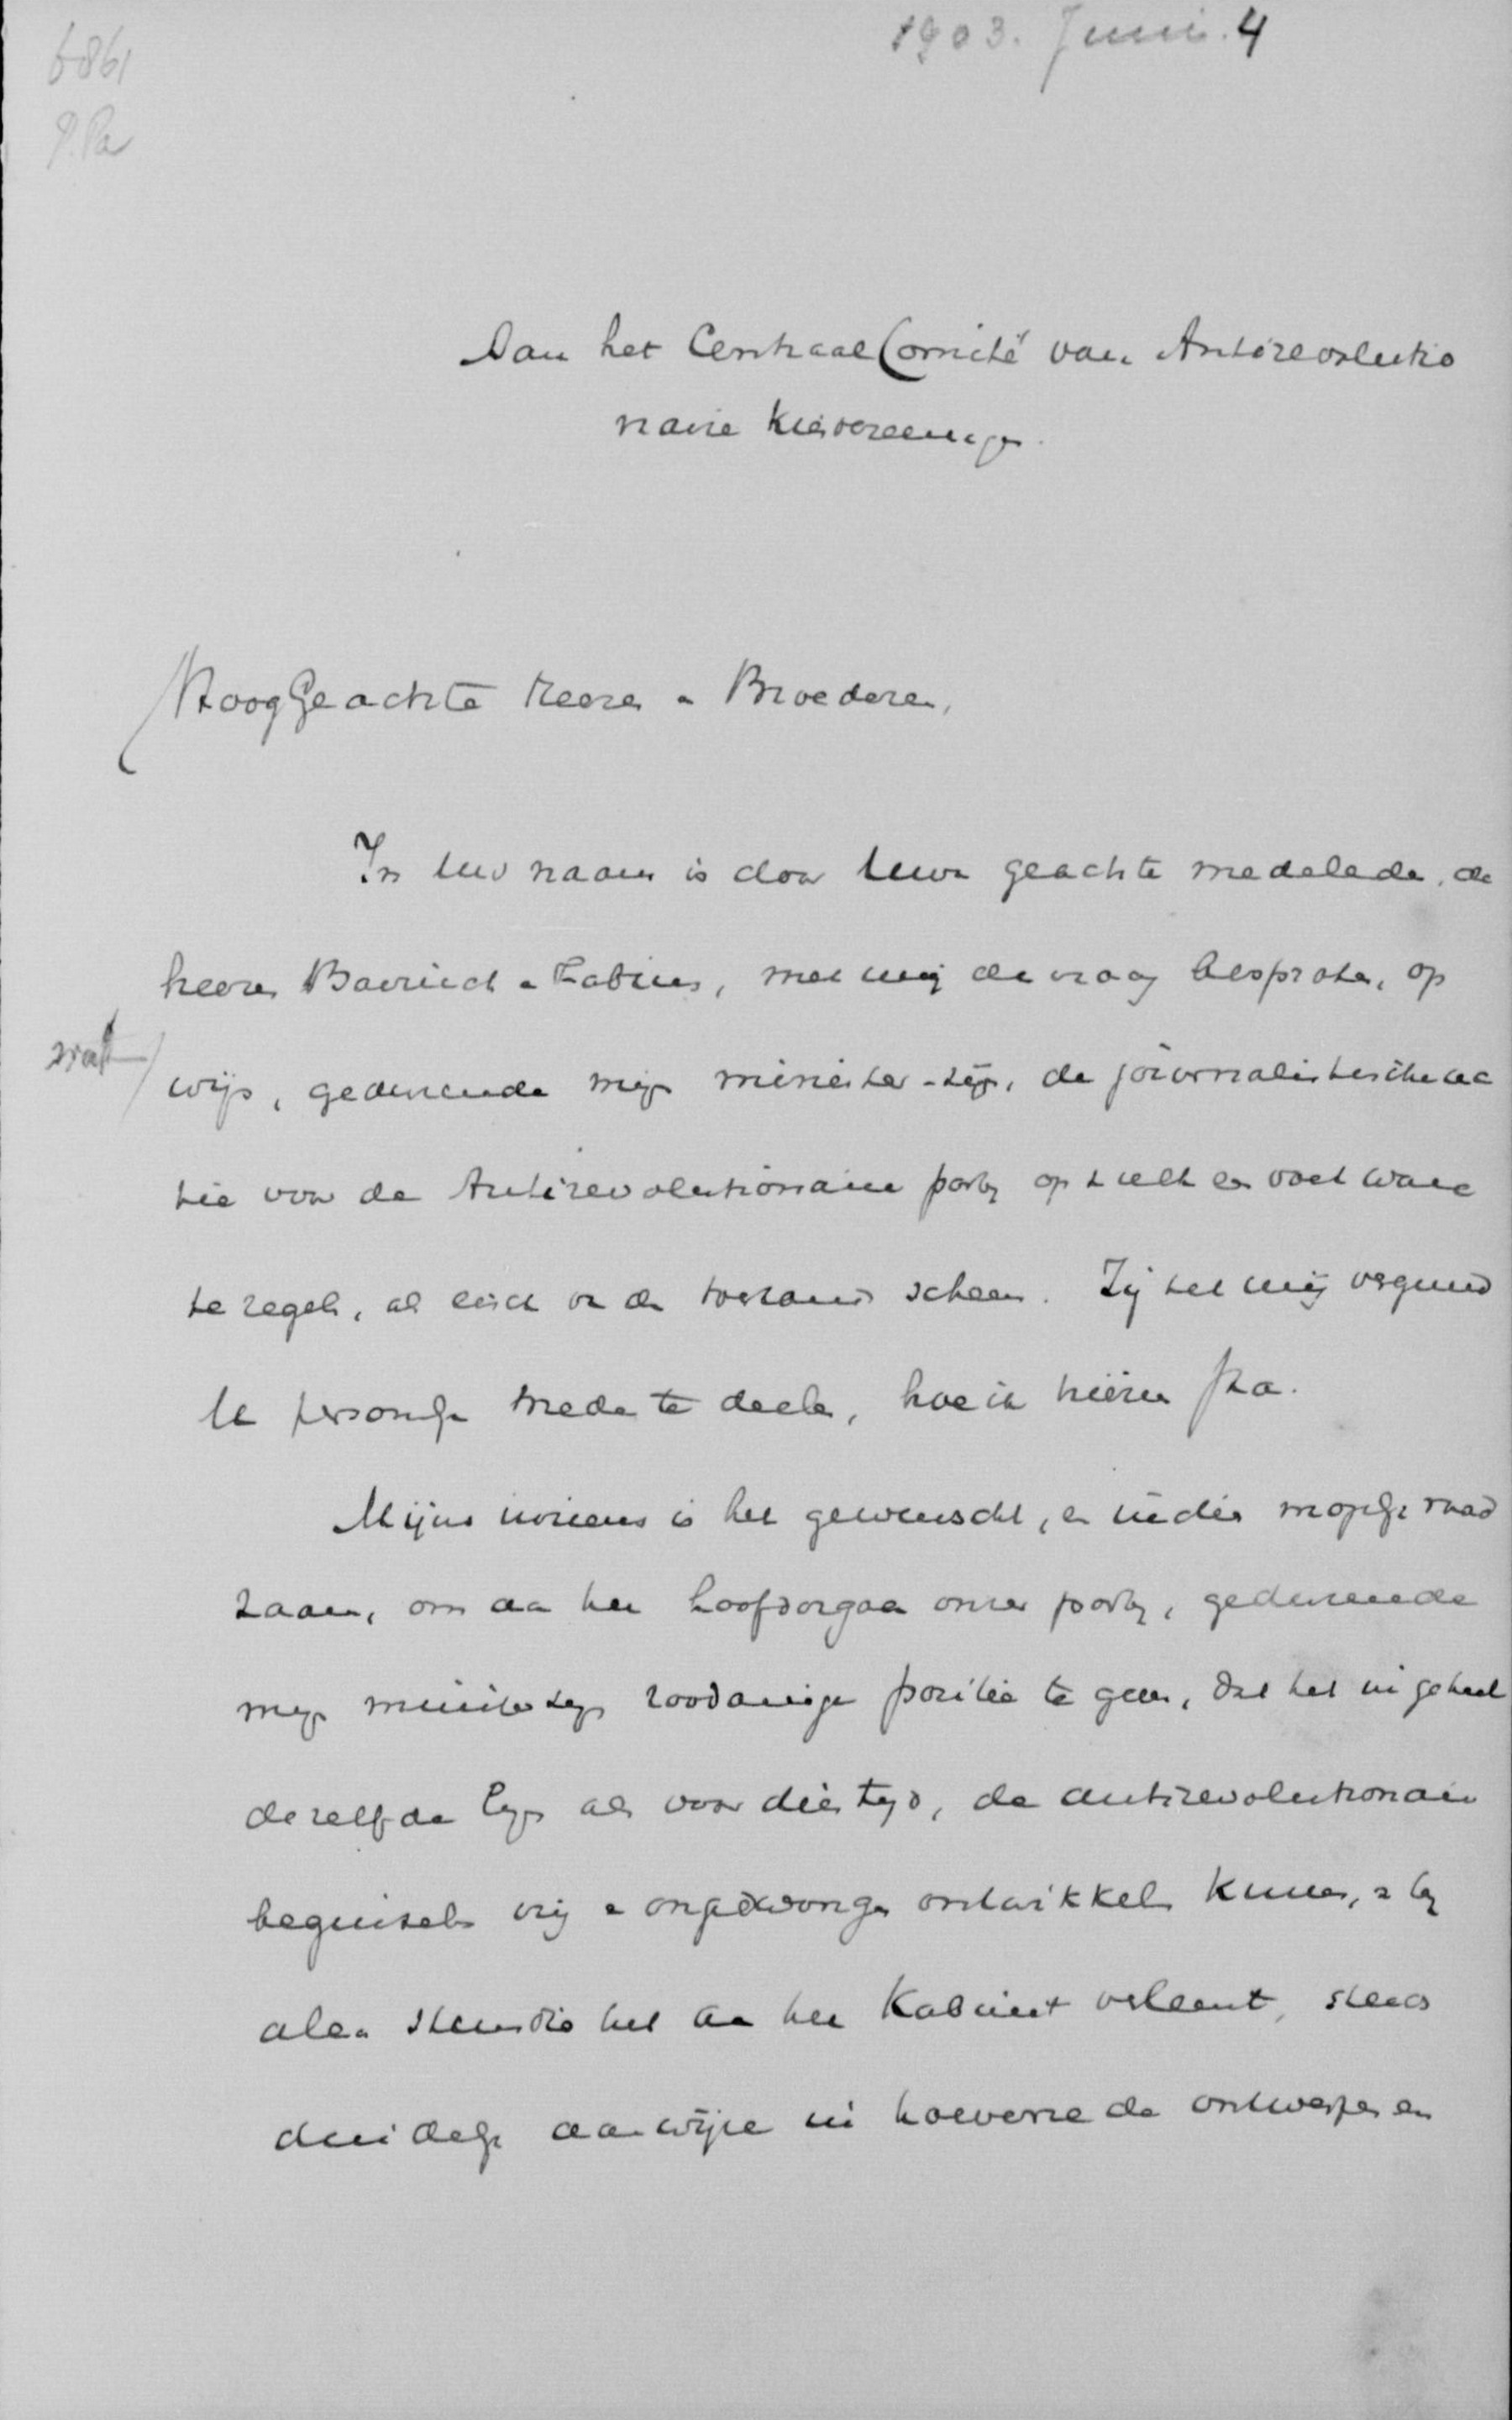 6861
1903. Juni. 4
P.Pa
Aan het Centraal Comité van Antirevolutio
naire Kiesvereenigen.
HoogGeachte Heeren en Broederen,
In Uw naam is door Uwe geachte medeleden, de
heeren Bavinck en Fabius, met mij de vraag besproken, op
wat
wijs, gedurende mijn minister-zijn, de journalistieke ac
tie voor de Antirevolutionaire partij op den voet ware
te regelen, als eisch van den toestand scheen. Zij het mij vergund
U persoonlijk mede te deelen, hoe ik hierin sta.
Mijns inziens is het gewenscht, en indien mogelijk raad
zaam, om aan het hoofdorgaan onzer partij, gedurende
mijn ministerzijn zoodanige positie te geven, dat het in geheel
dezelfde lijn als voor dien tijd, de antirevolutionaire
beginselen vrij en ongedwongen ontwikkelen kunne, en bij
allen steun dien het aan het Kabinet verleent, steeds
duidelijk aanwijze in hoeverre de ontwerpen en